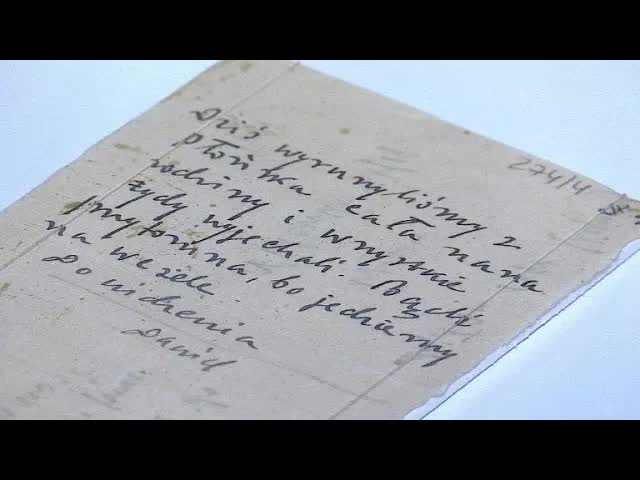 274/4
Dziś wyruszyliśmy z
płońska cała nasza
rodziny i wszystkie
żydy wyjechali. Bądź
przytomna, bo jedziemy
na wezele
do widzenia
David